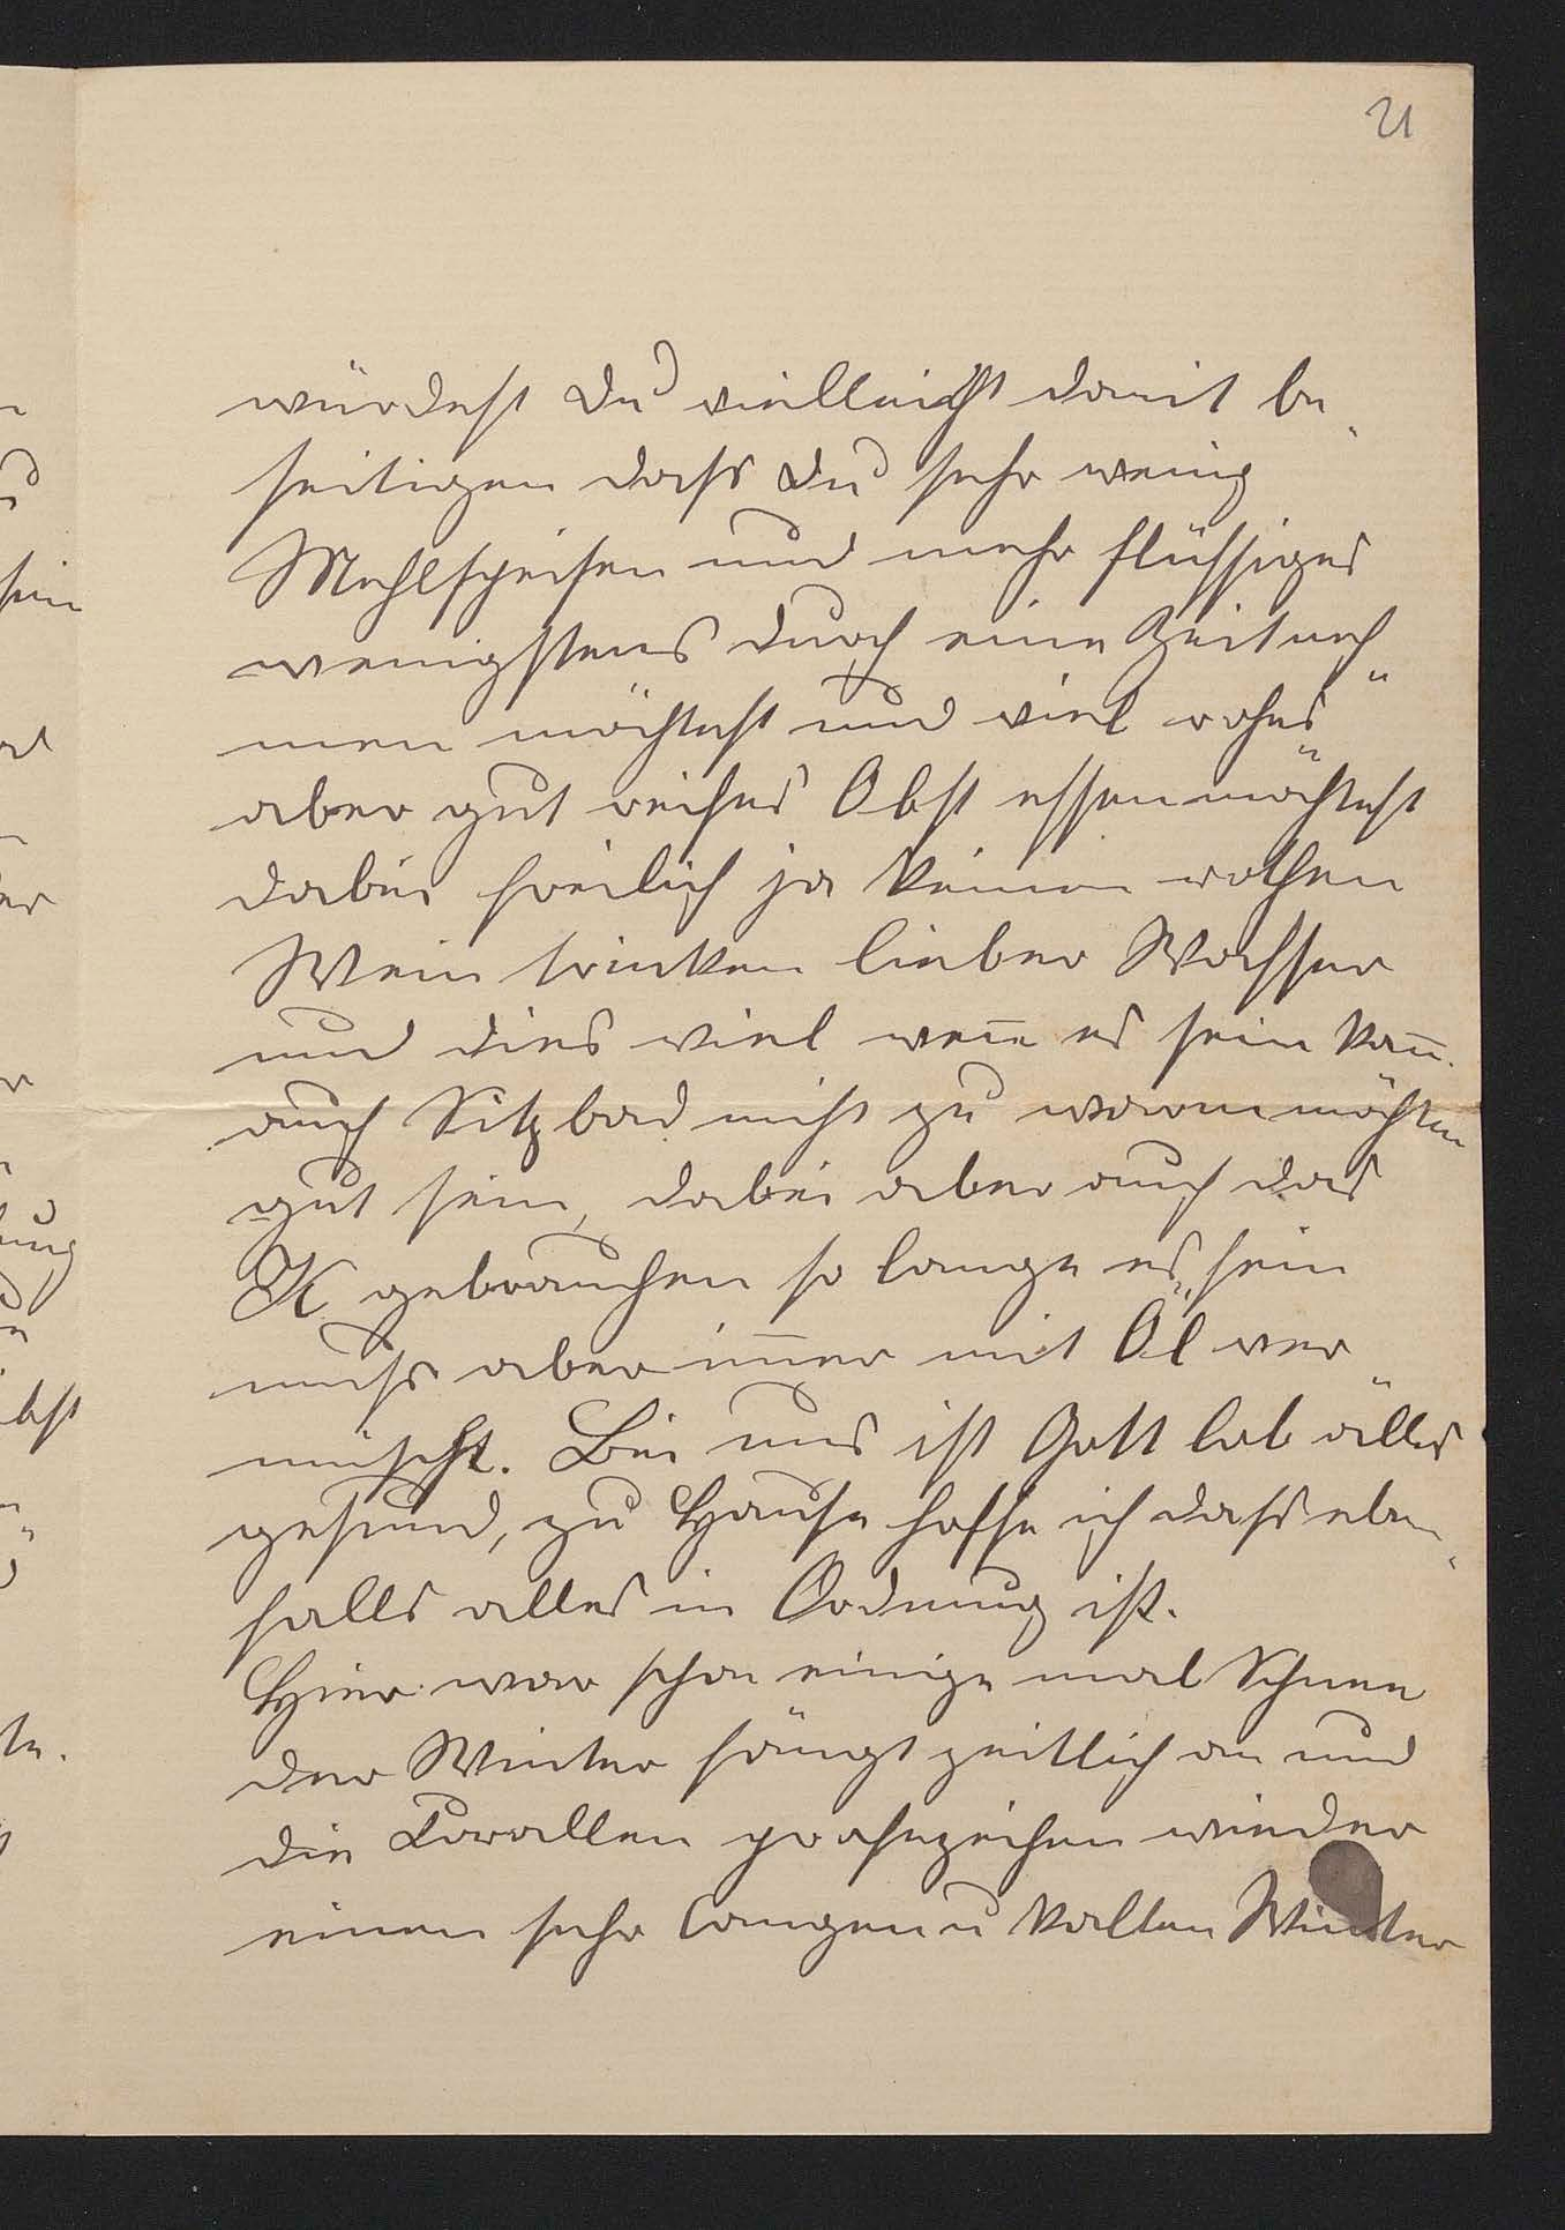 21
würdest Du vielleicht damit be„
seitigen dass Du sehr wenig
Mehlspeisen und mehr flüssiges
wenigstens durch eine Zeit neh„
men möchtest und viel rohes
aber gut reifes Obst essen möchtest
dabei freilich ja keinen rothen
Wein trinken lieber Wasser
und dies viel wen̅ es sein kan̅.
auch Sitzbad nicht zu warm möchten
gut sein, dabei aber auch das
K gebrauchen so lange es sein
muss aber im̅er mit Öl ver„
mischt. Bei uns ist Gott lob alles
gesund, zu Hause hoffe ich dass eben„
falls alles in Ordnung ist.
Hier war schon einige mal Schnee
der Winter fängt zeitlich an und
die profezeihen wieder
einen sehr langen u kalten Winter